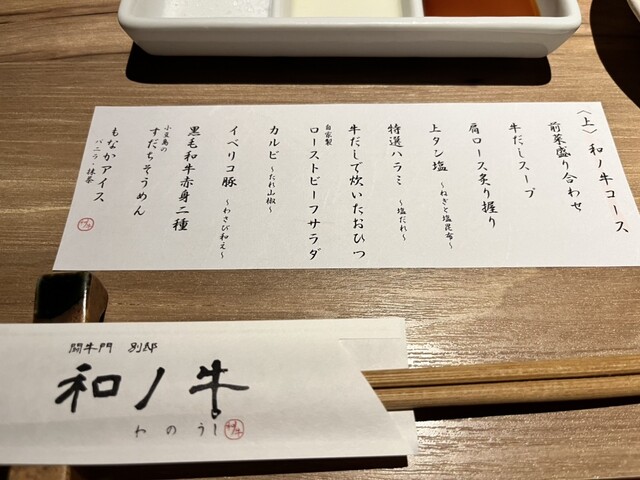 〈上〉 和ノ牛コース
前菜盛り合わせ
牛だしスープ
肩ロース炙り握り
上タン塩 〜ねぎと塩昆布〜
特選ハラミ 〜塩だれ〜
牛だしで炊いたおひつ
自家製
ローストビーフサラダ
カルビ 〜たれ山椒〜
イベリコ豚 〜わさび和え〜
黒毛和牛赤身二種
小豆島の
すだちそうめん
もなかアイス
バニラ・抹茶
闘牛門 別邸
和ノ牛
わのうし